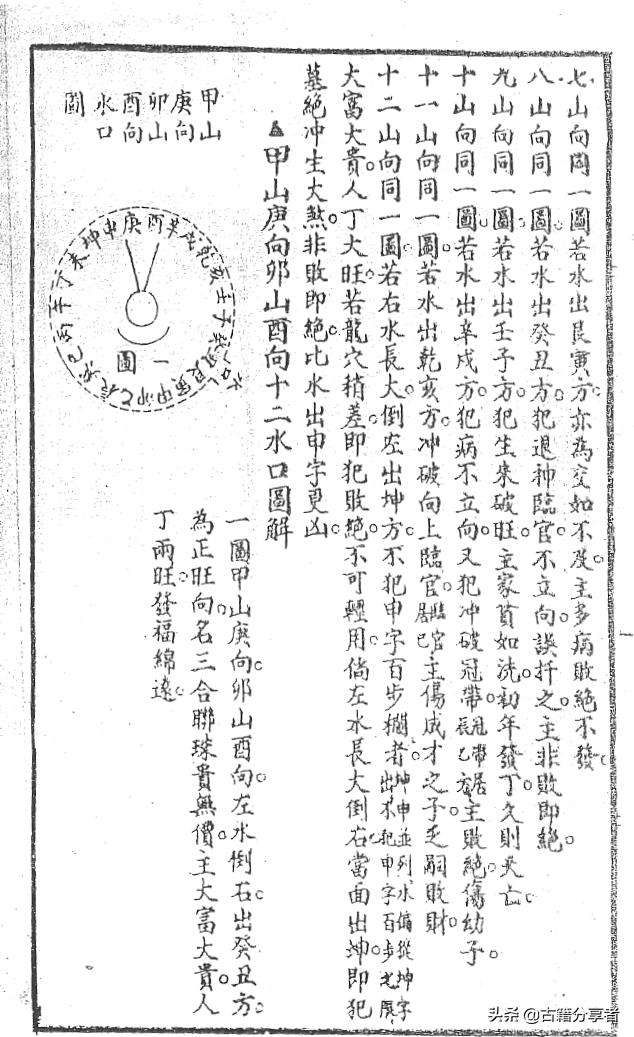 七山向同一圖若水出艮寅方亦為交如不及主多病敗絕不發
八山向同一圖若水出癸丑方犯退神臨官不立向誤扦之主非敗即絕
九山向同一圖若水出壬子方犯生來破旺主家貧如洗初年發丁久則夭亡
十山向同一圖若水出辛戌方犯病不立向又犯冲破冠帶冠帶居辰乙方主敗絕傷幼子
十一山向同一圖若水出乾亥方冲破向上臨官臨官居巳主傷成才之子乏嗣敗財
十二山向同一圖若右水長大倒左出坤方不犯申字百步欄者坤申並列水偏從坤字出不犯申字百步之展
大富大貴人丁大旺若龍穴稍差即犯敗絕不可輕用倘左水長大倒右當面出坤即犯
墓絕冲生大煞非敗即絕比水出申字更凶
甲山庚向卯山酉向十二水口圖解
甲山
庚向
卯山
酉向
水口
圖
一圖
一圖甲山庚向卯山酉向左水倒右出癸丑方
為正旺向名三合聯珠貴無價主大富大貴人
丁兩旺發福綿遠
头条 @古籍分享者